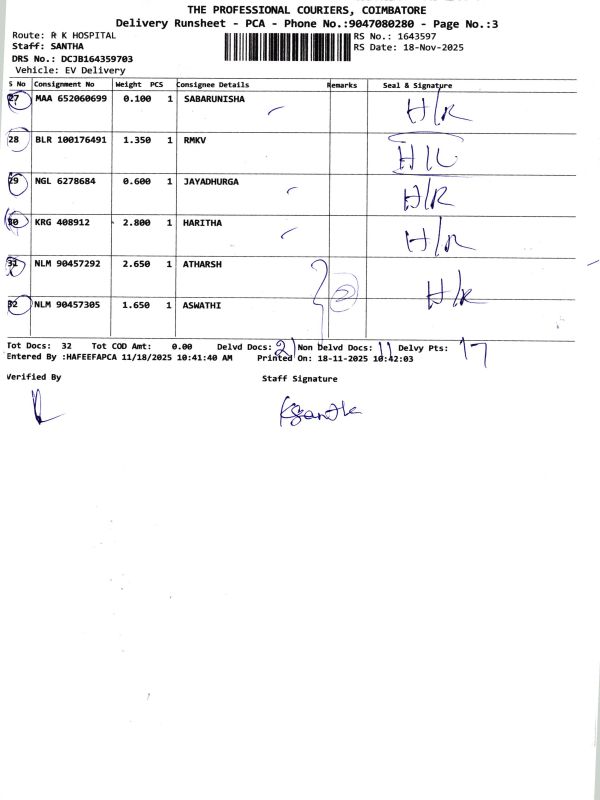 THE PROFESSIONAL COURIERS, COIMBATORE
Delivery Runsheet - PCA - Phone No.:9047080280 - Page No.:3
Route: R K HOSPITAL RS No.: 1643597
Staff: SANTHA RS Date: 18-Nov-2025
DRS No.: DCJB164359703
Vehicle: EV Delivery
S No Consignment No Weight PCS Consignee Details Remarks Seal & Signature
27 MAA 652060699 0.100 1 SABARUNISHA H/R
28 BLR 100176491 1.350 1 RMKV H/L
29 NGL 6278684 0.600 1 JAYADHURGA H/R
30 KRG 408912 2.800 1 HARITHA H/R
31 NLM 90457292 2.650 1 ATHARSH
2 H/R
32 NLM 90457305 1.650 1 ASWATHI
Tot Docs: 32 Tot COD Amt: 0.00 Delvd Docs: 21 Non Delvd Docs: 11 Delvy Pts: 17
Entered By :HAFEEFAPCA 11/18/2025 10:41:40 AM Printed On: 18-11-2025 10:42:03
Verified By Staff Signature